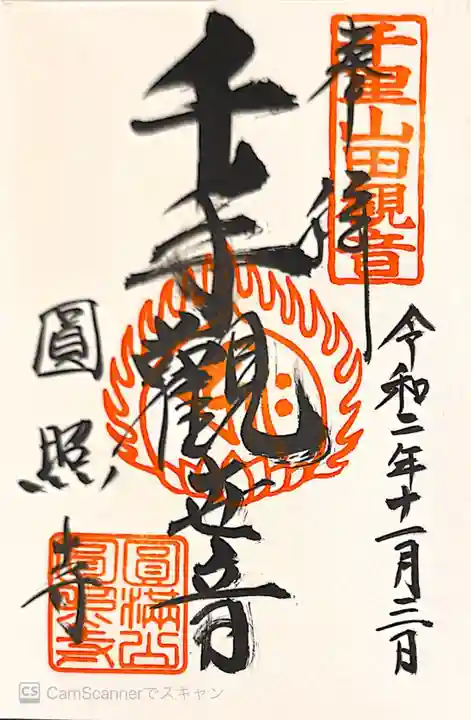 奉拝
千里山田観音
令和二年十一月三日
千手觀世音
圓照寺
圓満山
圓照寺
CS CamScannerでスキャン